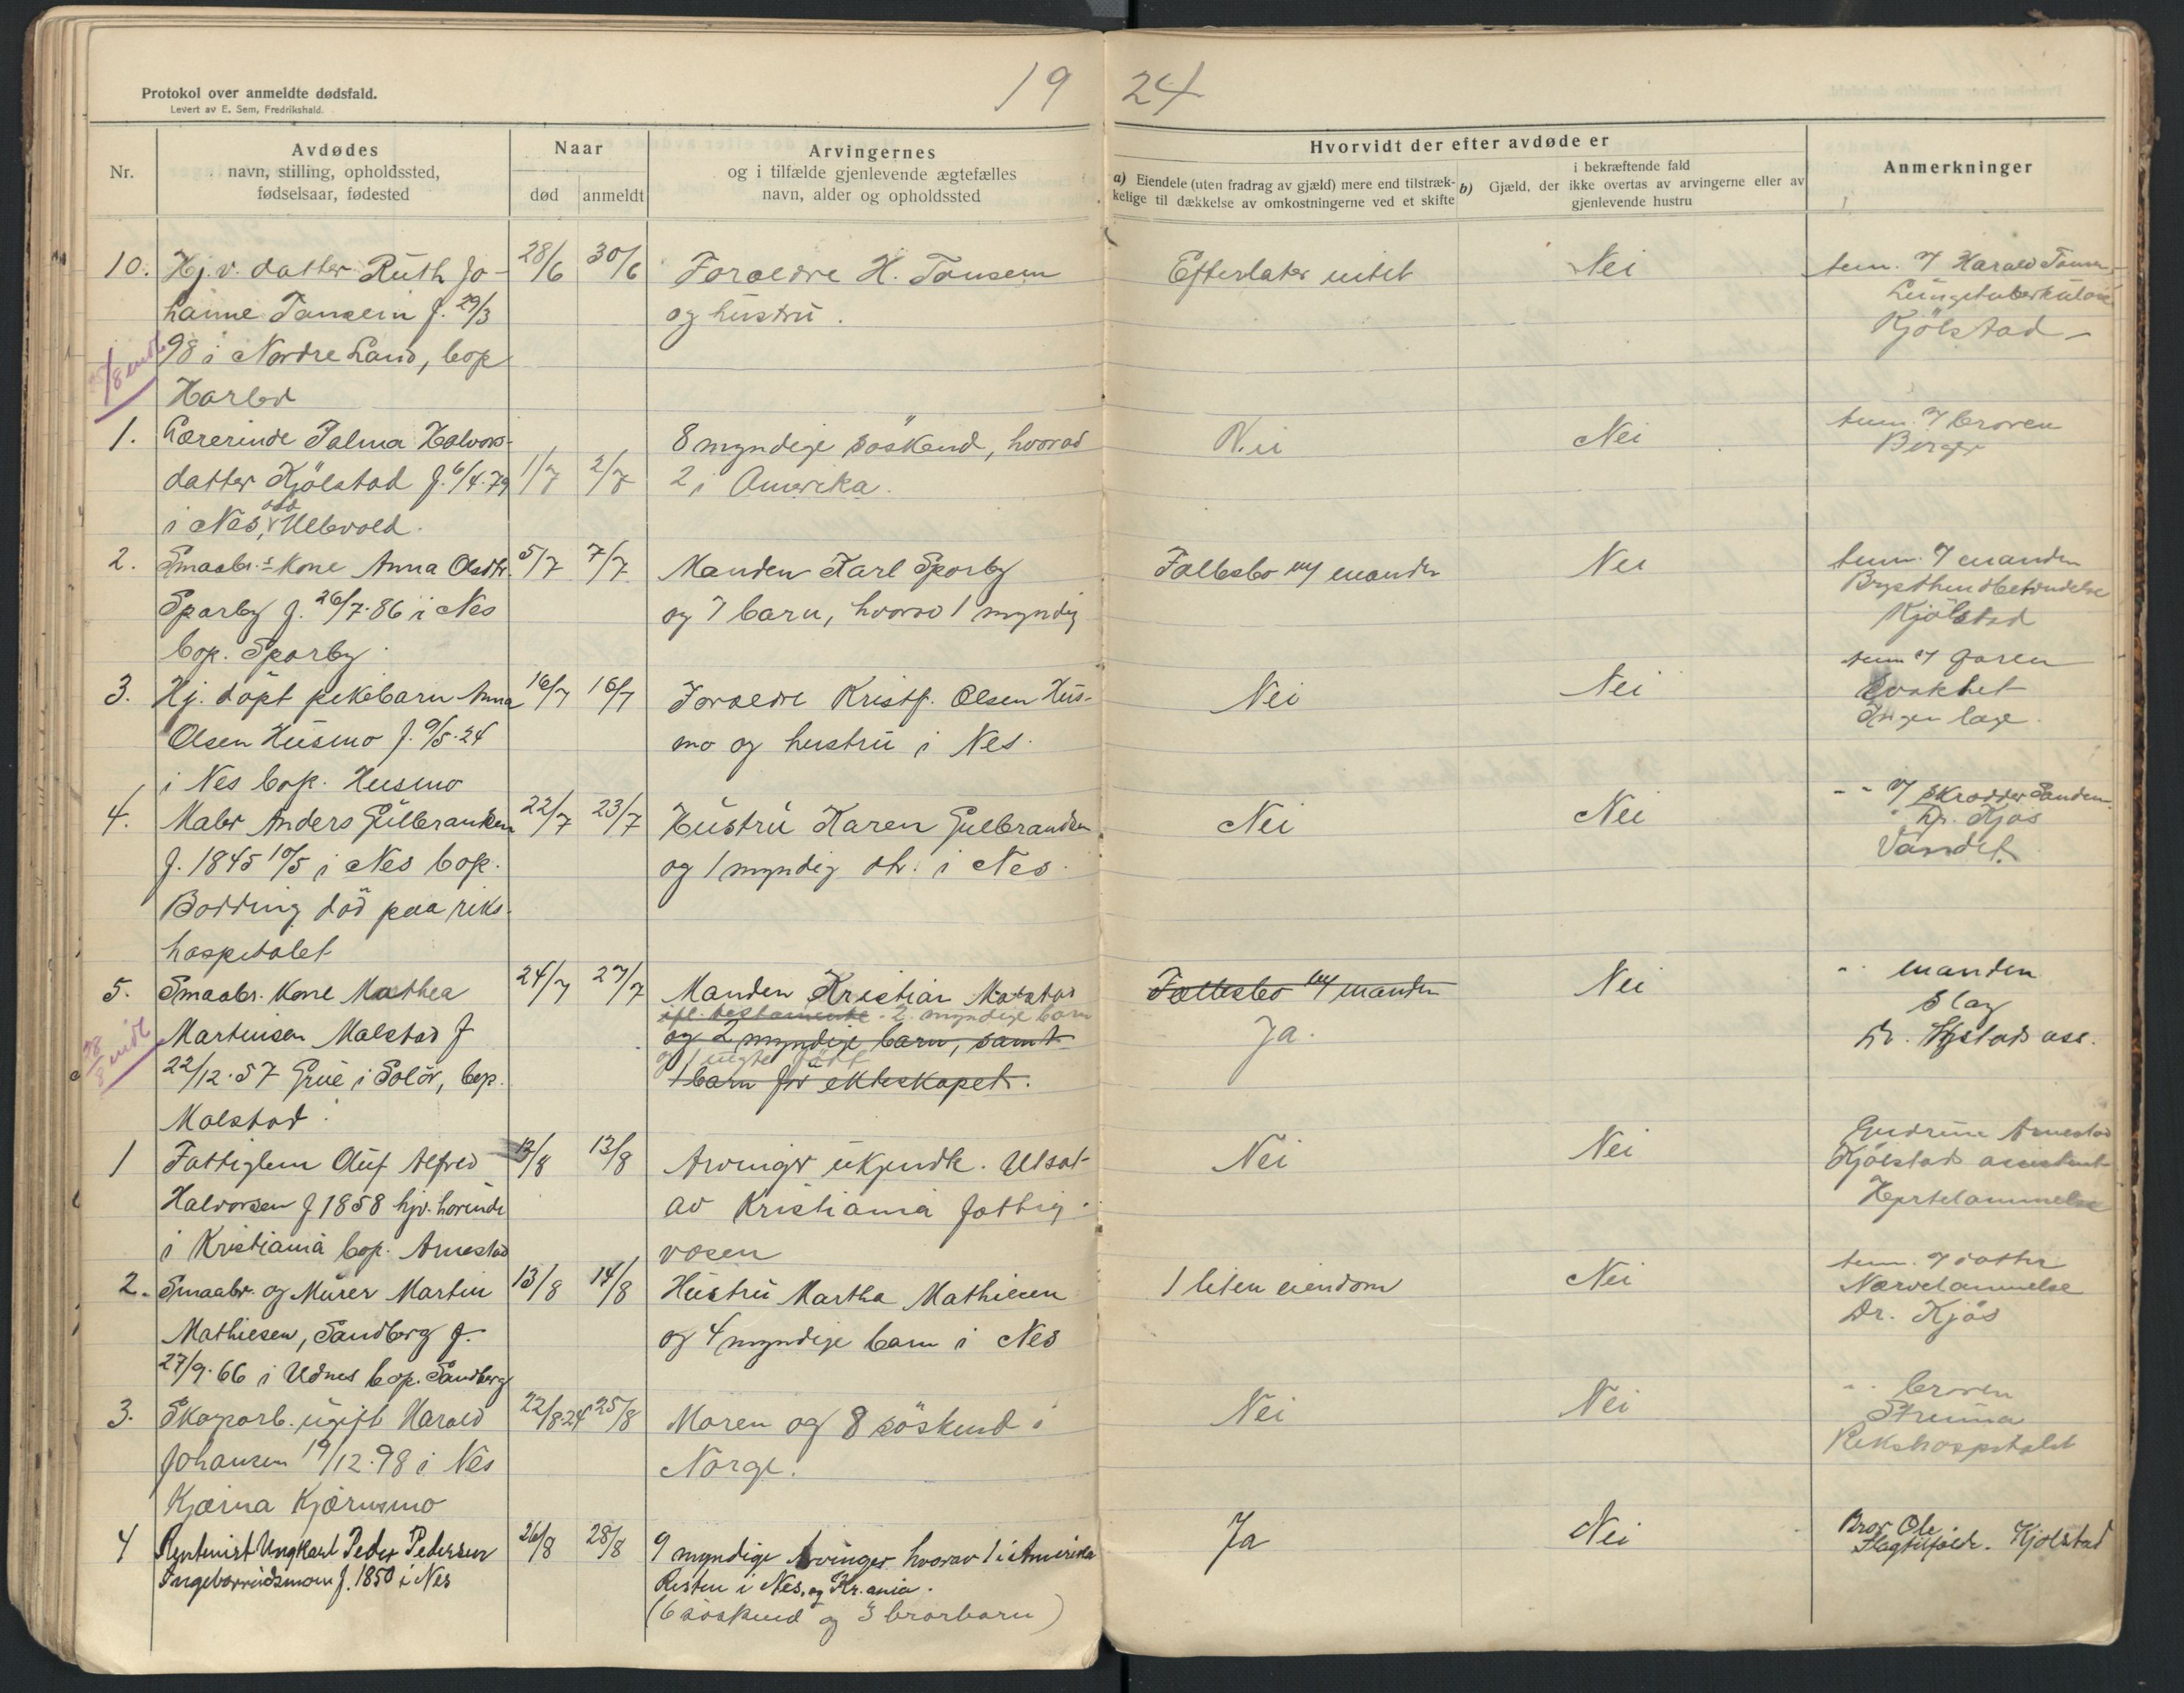 19 24
Protokol over anmeldte dødsfald.
Levert av E. Sem, Fredrikshald.
Nr.
Avdødes
navn, stilling, opholdssted,
fødselsaar, fødested
Naar
død anmeldt
Arvingernes
og i tilfælde gjenlevende ægtefælles
navn, alder og opholdssted
Hvorvidt der efter avdøde er
a) Eiendele (uten fradrag av gjæld) mere end tilstræk-
kelige til dækkelse av omkostningerne ved et skifte
b) Gjæld, der
i bekræftende fald
ikke overtas av arvingerne eller av
gjenlevende hustru
Anmerkninger
10. Hj. v. datter Ruth Jo-
hanne Tansein f. 29/3
98 i Nordre Land, bop
28/6 30/6
Foraeldre H. Tansem
og hustru.
Efterlater intet
Nei
Harald
Lungetuberkulose
Kjölstad
1. Lærerinde Palma Halvors-
datter Kjölstad f. 6/4.79
i Nes,
1/7 2/7
8 myndige söskend, hvorad
2 i Amerika.
Nei
Nei
broren
Birger
2. Smaabr.s kone Anna Olsdtr.
Sparby f. 26/7.86 i Nes
bop. Sparby
5/7 7/7
Manden Karl Sparby
og 7 barn, hvorav 1 myndig
Fallesbo m/ manden
Nei
manden
Kjölstad
3. Hj. döpt pikebarn Anna
Olsen Husmo f. 9/5.24
i Nes bop. Husmo
16/7 16/7
Foraeldre Kristf. Olsen Hus-
mo og hustru i Nes.
Nei
Nei
faren
Svakhet
Ingen læge
4. Maler Anders Gulbransen
f. 1845 10/5 i Nes bop.
Bodding död paa riks-
hospitalet
22/7 23/7
Hustru Karen Gulbrandsen
og 1 myndig dtr. i Nes
Nei
Nei
Dr. Kjös
5. Smaabr. kone Mathea
Martinsen Malstad f
22/12.57 Grue i Solör, bop.
Malstad
24/7 27/7
Manden Kristian Malstad
ifl. testamente. 2 myndige barn
og 2 myndige barn, samt
1 barn för ekteskapet.
Fallesbo m/ manden
Ja.
Nei
manden
Slag
1 Fattiglem Oluf Alfred
Halvorsen f 1858 hjv. horende
i Kristiania bop. Arnestad
12/8 13/8
Arvinger ukjendte. Utsat
av Kristiania fattig-
væsen
Nei
Nei
Gudrun Arnestad
Kjölstads assistent
Hjertelammelse
2. Smaabr. og Murer Martin
Mathiesen, Sandberg f.
27/9.66 i Udnes bop. Sandberg
13/8 14/8
Hustru Martha Mathiesen
og 4 myndige barn i Nes
1 liten eiendom
Nei
datter
Nervelammelse
Dr. Kjös
3. Skogarb. ugift Harald
Johansen 19/12.98 i Nes
Kjærna Kjernsmo
22/8 24 25/8
Moren og 8 söskend i
Norge.
Nei
Nei
broren
Struma
Rikshospitalet
4 Rentenist Ungkarl Peder Pedersen
f. 1850 i Nes
26/8 28/8
9 myndige Arvinger hvorav 1 i Amerika
Resten i Nes, og Kr.ania.
(6 söskend og 3 brorbarn)
Ja
Nei
Bror Ole
Slagtilfælde. Kjölstad